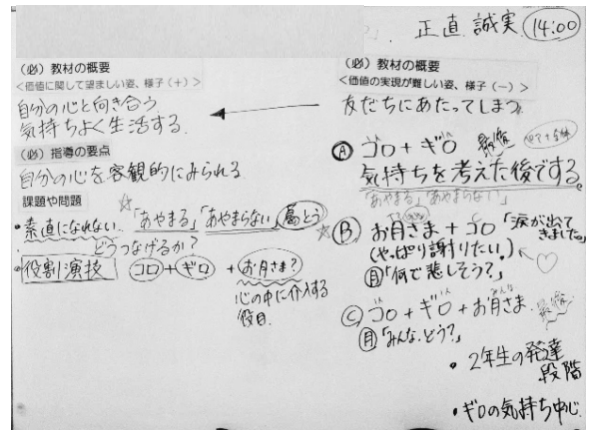 正直 誠実 14:00
(必) 教材の概要
<価値に関して望ましい姿、様子(+)>
自分の心と向き合う
気持ちよく生活する。
(必) 指導の要点
自分の心を客観的にみられる
課題や問題
・素直になれない。 ☆「あやまる」「あやまらない」葛とう
どうつなげるか?
・役割演技 コロ+ギロ + お月さま?
心の中に介入する
役目。
(必) 教材の概要
<価値の実現が難しい姿、様子(-)>
友だちにあたってしまう
Ⓐ コロ + ギロ 最後
気持ちを考えた後でする。
「あやまる」「あやまらない」
☆Ⓑ お月さま + コロ 「涙が出て
きました。」
(やっぱり謝りたい。)
月「何で悲しそう?」
Ⓒ コロ + ギロ + お月さま 最後
みんな
月「みんな、どう?」
・2年生の発達
段階
・ギロの気持ち中心